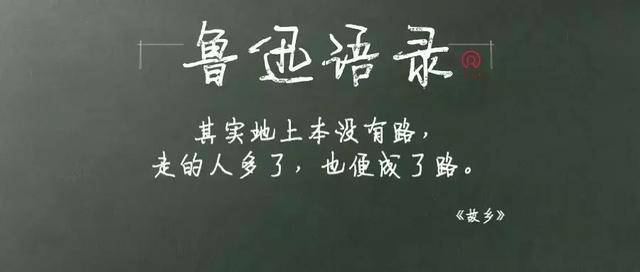 鲁迅语录
其实地上本没有路，
走的人多了，也便成了路。
《故乡》